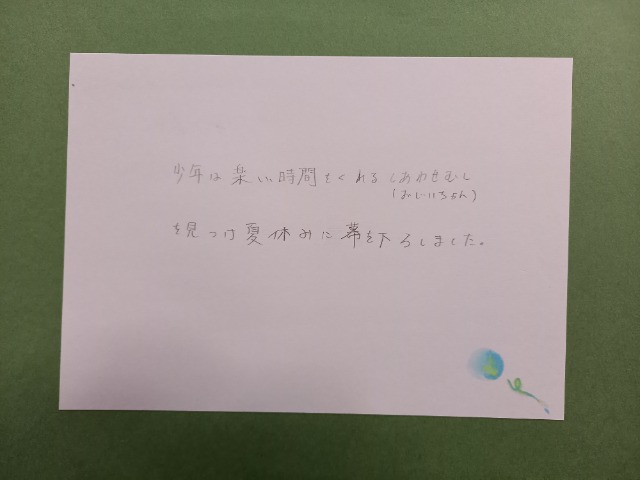 少年は楽しい時間をくれるしあわせむし
(おじいちゃん)
を見つけ夏休みに幕を下ろしました。